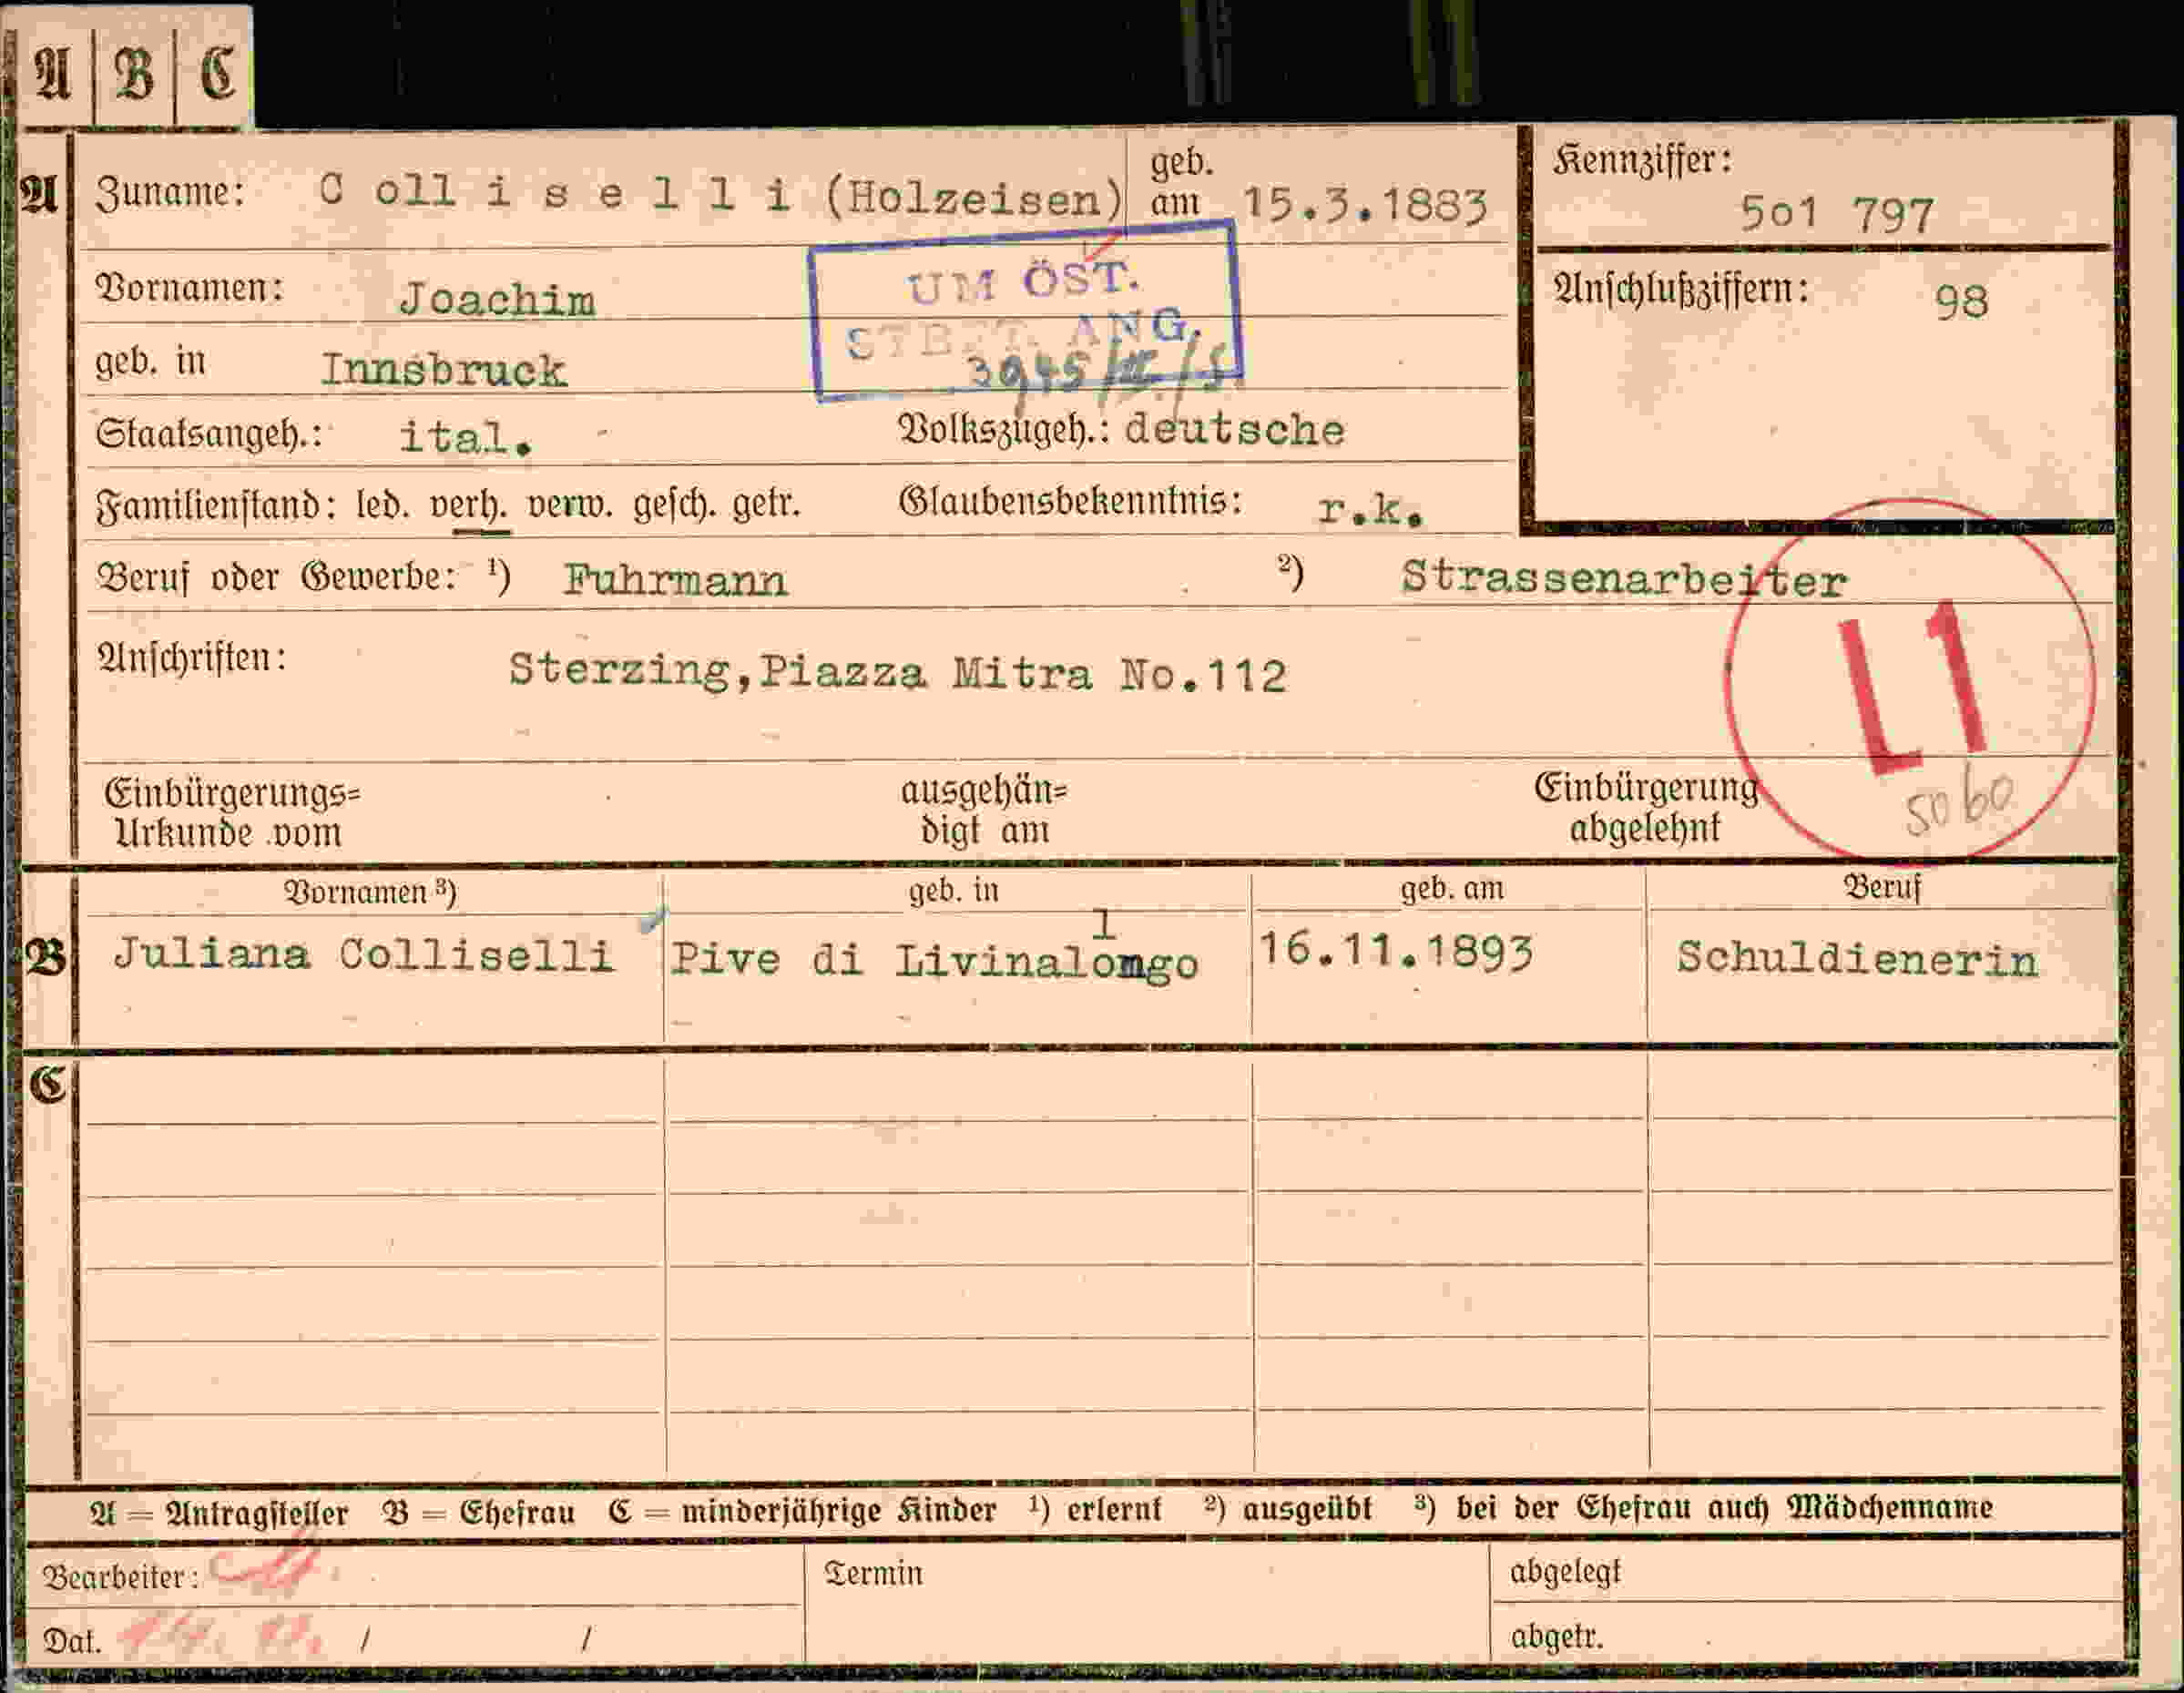 A B C
A Zuname: C oll i s e l l i (Holzeisen) geb. am 15.3.1883
Kennziffer: 5o1 797
Vornamen: Joachim
UM ÖST.
ANG.
Anschlußziffern: 98
geb. in Innsbruck
Staatsangeh.: ital. Volkszugeh.: deutsche
Familienstand: led. verh. verw. gesch. getr. Glaubensbekenntnis: r.k.
Beruf oder Gewerbe: ¹) Fuhrmann ²) Strassenarbeiter
Anschriften: Sterzing,Piazza Mitra No.112
L1
5060
Einbürgerungs= ausgehän= Einbürgerung
Urkunde vom digt am abgelehnt
Vornamen ³) geb. in geb. am Beruf
l
B Juliana Colliselli Pive di Livinalongo 16.11.1893 Schuldienerin
C
A = Antragsteller B = Ehefrau C = minderjährige Kinder ¹) erlernt ²) ausgeübt ³) bei der Ehefrau auch Mädchenname
Bearbeiter: Termin abgelegt
Dat. / / abgetr.